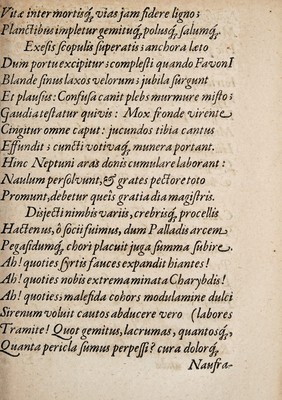 Vitæ inter mortisq́, vias jam fidere ligno;
Planctibus impletur gemituq́, polusq́, salumq́.
Exesis scopulis superatis; anchora lato
Dum portu excipitur; complesti quando FavonI
Blande sinus laxos velorum; jubila surgunt
Et plausus: Confusa canit plebs murmure misto;
Gaudia testatur quivis: Mox fronde virente
Cingitur omne caput: jucundos tibia cantus
Effundit; cuncti votivaq́, munera portant.
Hinc Neptuni aras donis cumulare laborant:
Naulum persolvunt, & grates pectore toto
Promunt, debetur queis gratia dia magistris.
Disjecti nimbis variis, crebrisq́, procellis
Hactenus, ô socii fuimus, dum Palladis arcem
Pegasidumq́, chori placuit juga summa subire.
Ah! quoties syrtis fauces expandit hiantes!
Ah! quoties nobis extrema minata Charybdis!
Ah! quoties; malefida cohors modulamine dulci
Sirenum voluit cautos abducere vero (labores
Tramite! Quot gemitus, lacrumas, quantosq́,
Quanta pericla sumus perpessi? cura dolorq́,
Naufra-